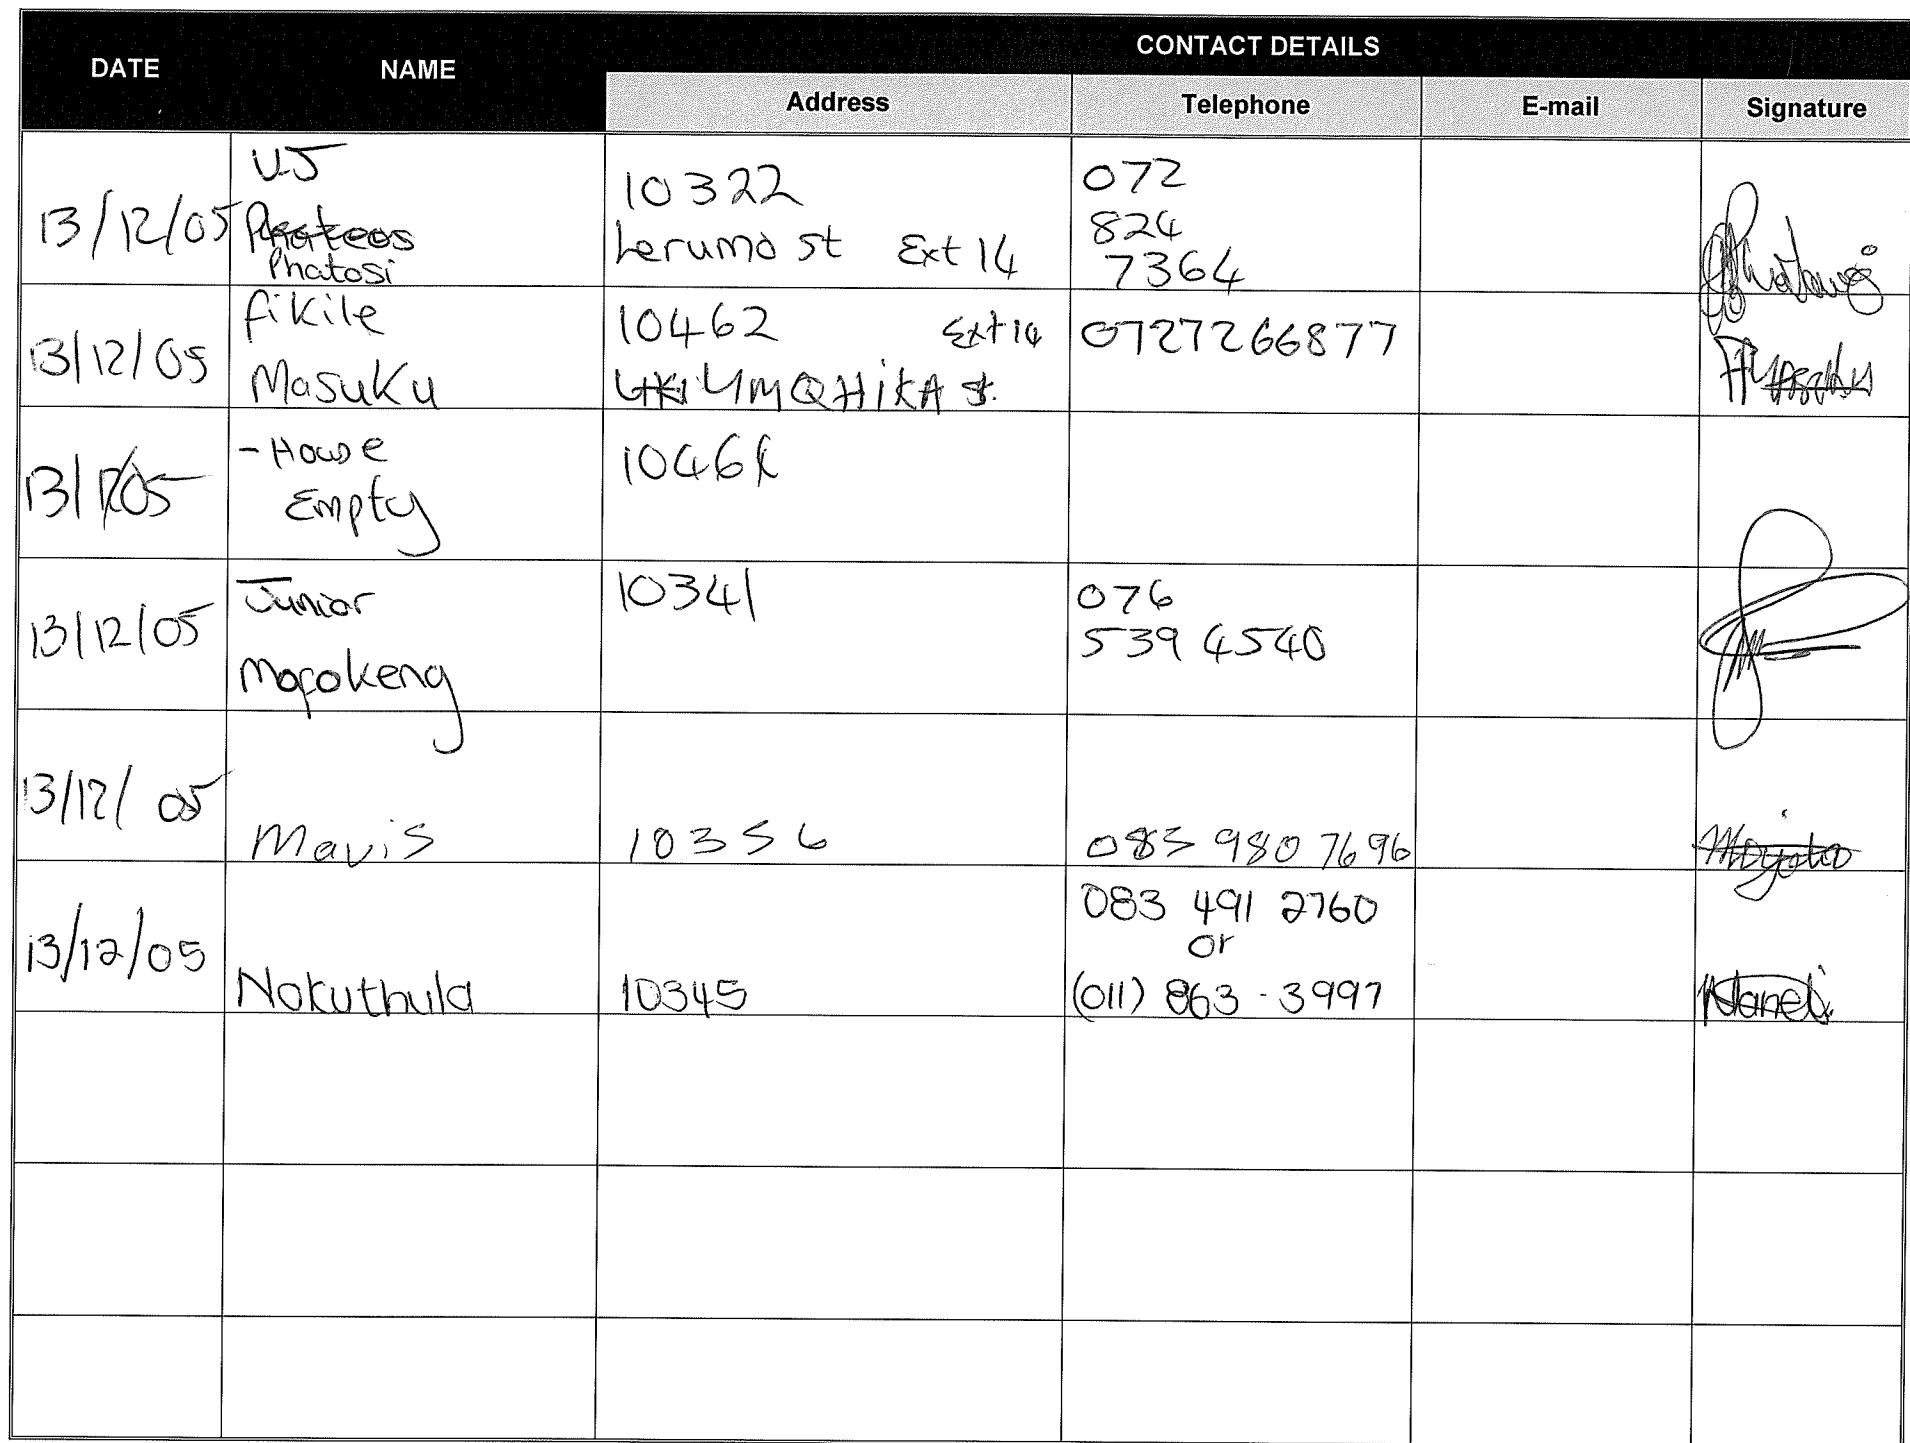 CONTACT DETAILS
DATE NAME
Address Telephone E-mail Signature
13/12/05
V.J
Phatosi
10322
Lerumo st Ext 14
072
824
7364
13/12/05
fikile
Masuku
10462 Ext 14
UMQHIKA st.
0727266877
13/12/05
- House
Empty
1046
13/12/05
Junior
Mofokeng
10341
076
539 4540
13/12/05
Mavis
10356
083 980 7696
13/12/05
Nokuthula
10345
083 491 2760
or
(011) 863-3997